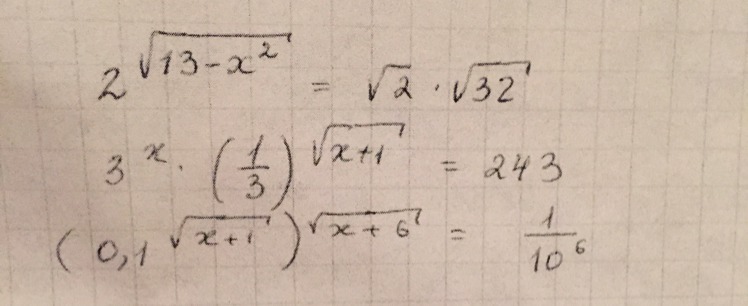 2^√(13-x²) = √2 · √32
3^x · (1/3)^√(x+1) = 243
(0,1^√(x+1))^√(x+6) = 1/10⁶